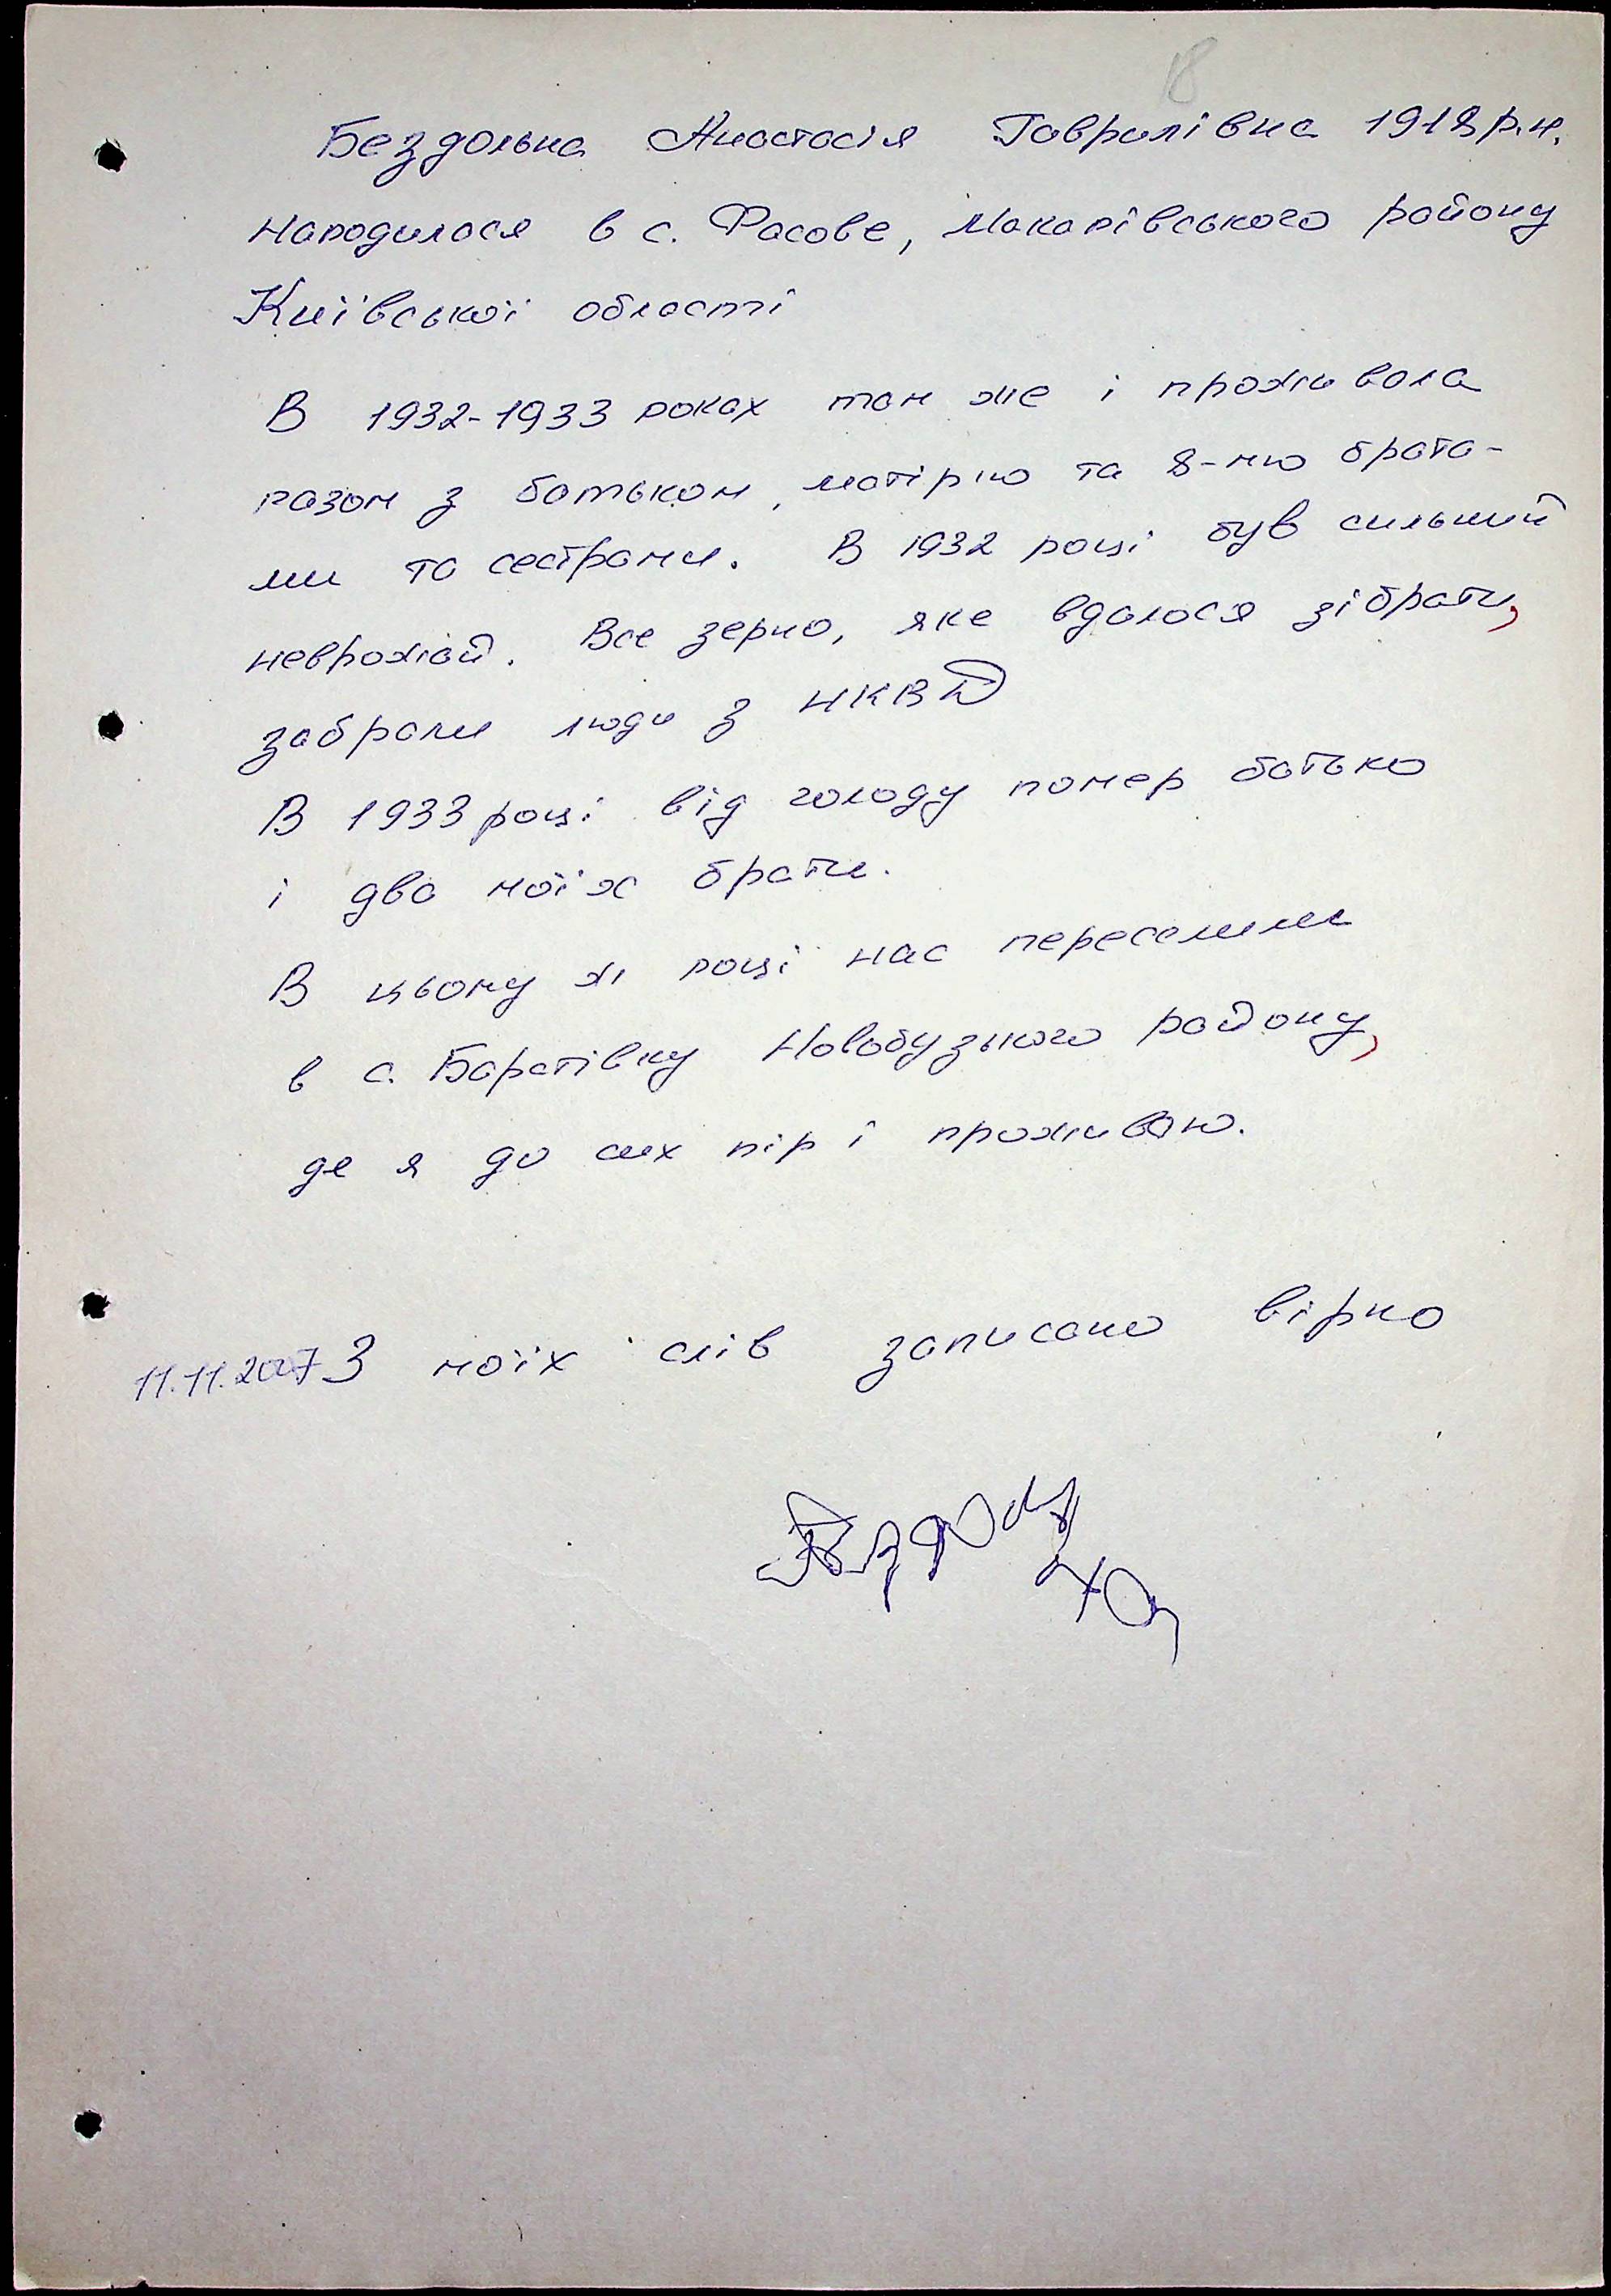 18
Бездольна Анастасія Гаврилівна 1918 р.н.
народилася в с. Фасове, Макарівського району
Київської області
В 1932-1933 роках там же і проживала
разом з батьком, матірю та 8-мю брата-
ми та сестрами. В 1932 році був сильний
неврожай. Все зерно, яке вдалося зібрати,
забрали люди з НКВД
В 1933 році від голоду помер батько
і два моїх брати.
В цьому ж році нас переселили
в с. Баратівку Новобузького району,
де я до сих пір і проживаю.
11.11.2007 З моїх слів записано вірно